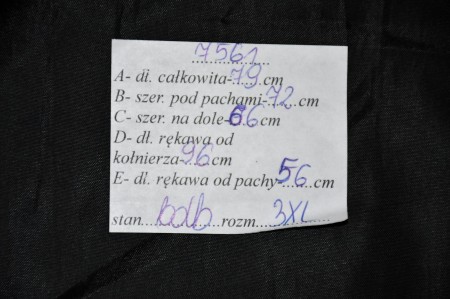 7561
A- dł. całkowita-79 cm
B- szer. pod pachami-72 cm
C- szer. na dole-66 cm
D- dł. rękawa od
kołnierza-96 cm
E- dł. rękawa od pachy-56 cm
stan bdb rozm. 3XL